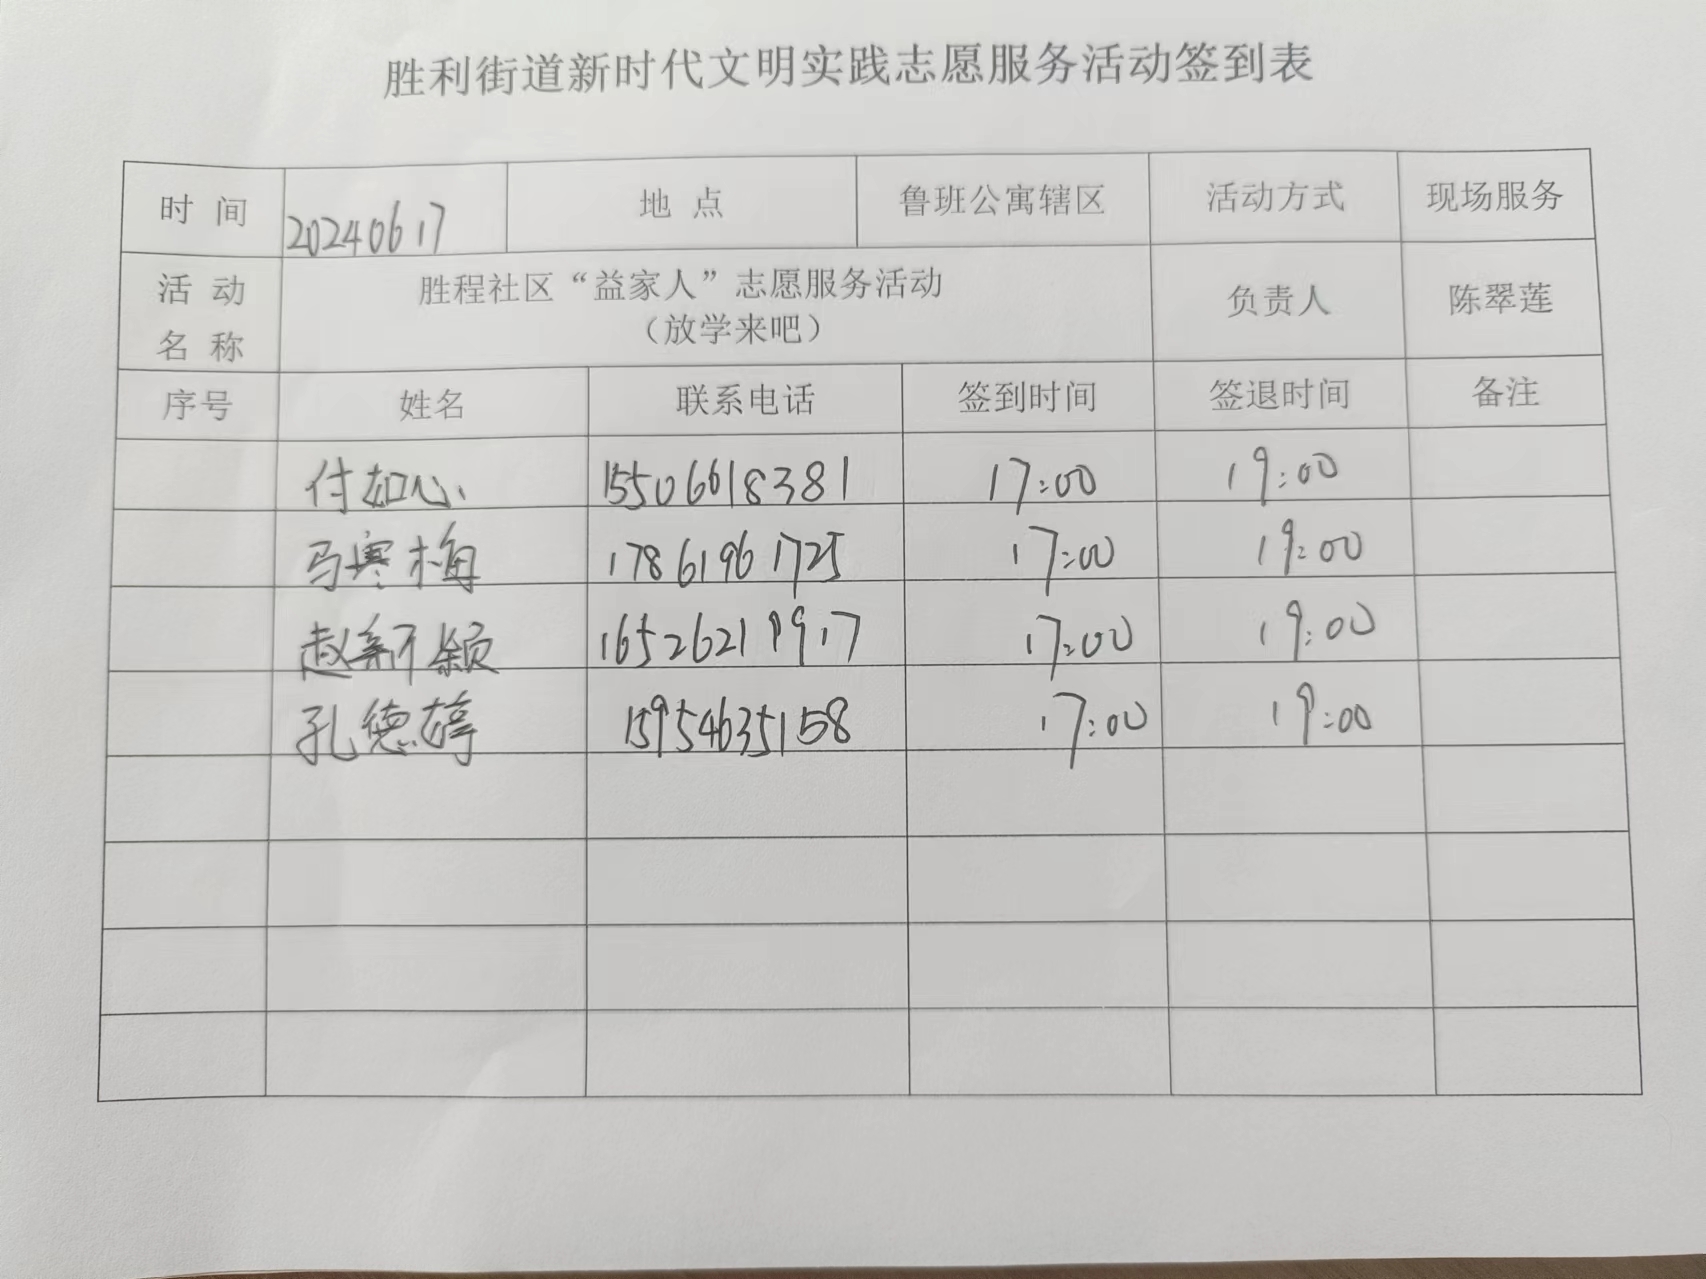 胜利街道新时代文明实践志愿服务活动签到表
时 间 20240617 地 点 鲁班公寓辖区 活动方式 现场服务
活 动 名 称 胜程社区“益家人”志愿服务活动 负责人 陈翠莲
（放学来吧）
序号 姓名 联系电话 签到时间 签退时间 备注
付如心 15506618381 17:00 19:00
马寒梅 17861961725 17:00 19:00
赵新颖 16526219917 17:00 19:00
孔德婷 15954635158 17:00 19:00